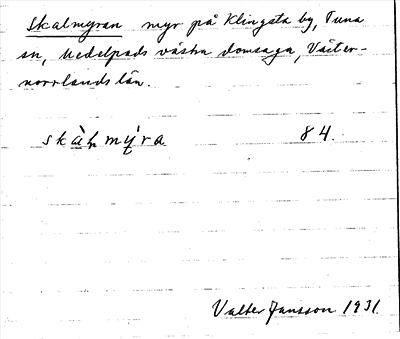 Skalmyran myr på Klingsta by, Tuna
sn, Medelpads västra domsaga, Väster-
norrlands län.
skàlmýra 84.
Valter Jansson 1931.